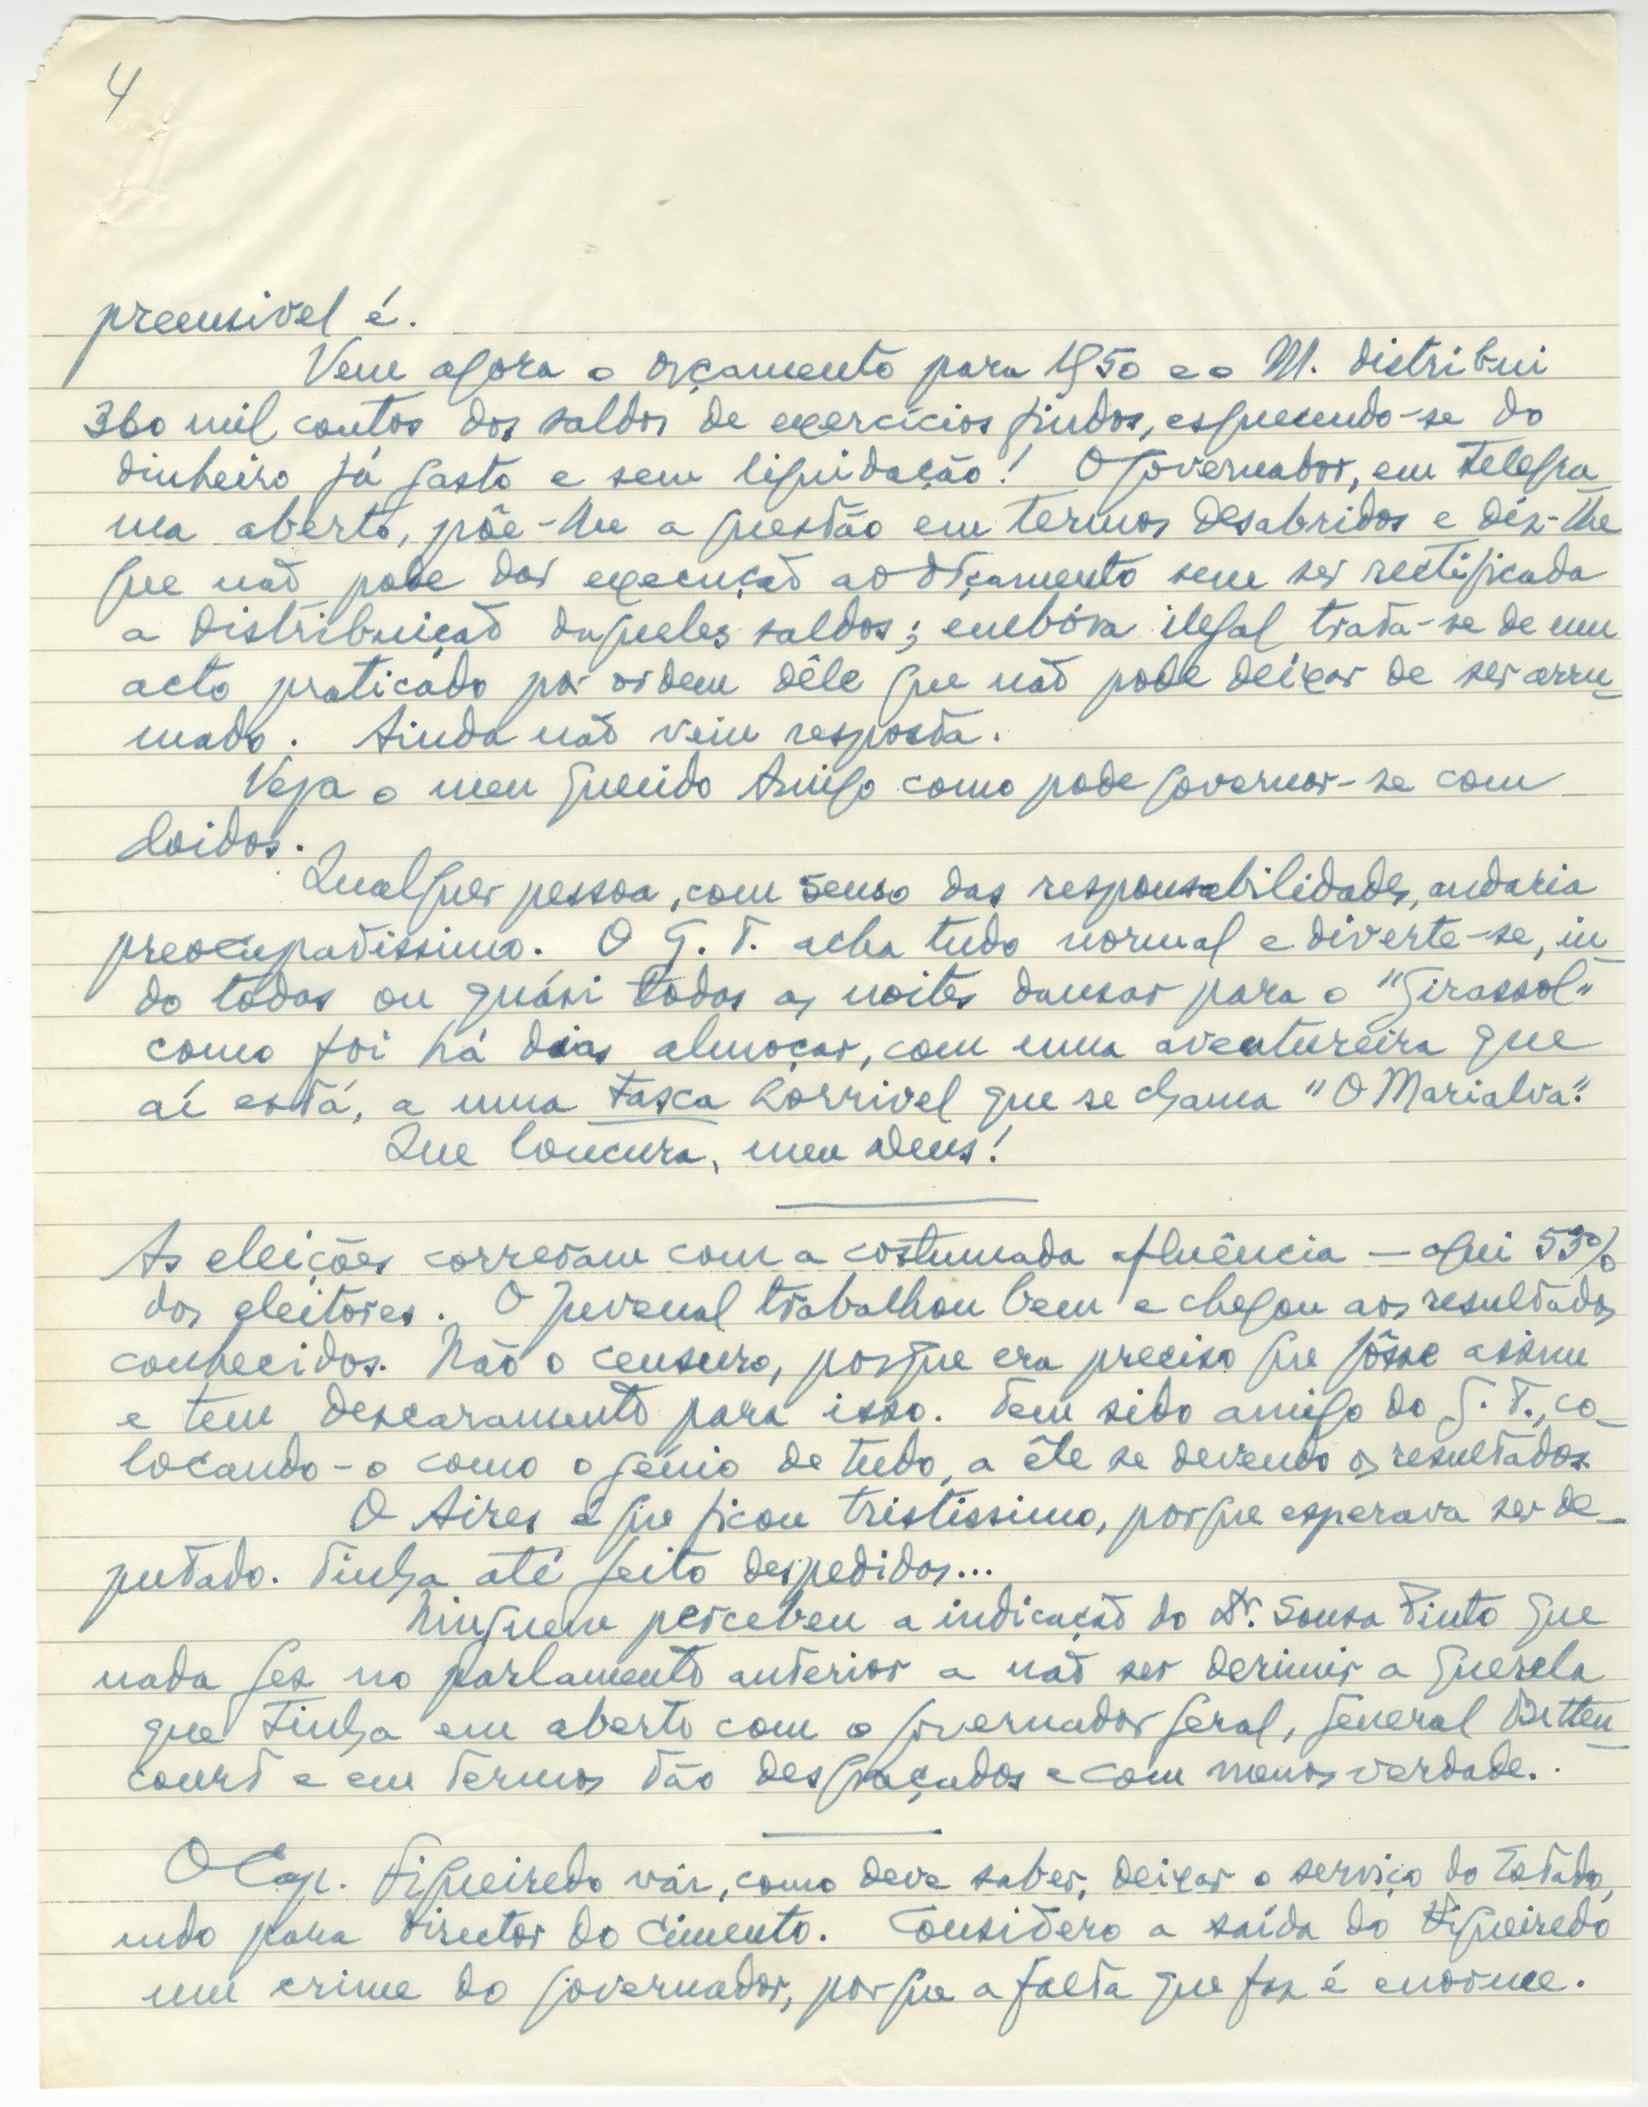 4
preensivel é.
Vem agora o orçamento para 1950 e o M. distribui
360 mil contos dos saldos de exercícios findos, esquecendo-se do
dinheiro já gasto e sem liquidação! O Governador, em telegra
ma aberto, põe-lhe a questão em termos desabridos e diz-lhe
que não pode dar execução ao orçamento sem ser rectificada
a distribuição daqueles saldos; embóra ilegal trata-se de um
acto praticado por ordem dêle que não pode deixar de ser arru_
mado. Ainda não veiu resposta.
Veja o meu querido Amigo como pode governar-se com
doidos.
Qualquer pessoa, com senso das responsabilidades, andaria
preocupadissimo. O G. T. acha tudo normal e diverte-se, in_
do todas ou quási todas as noites dansar para o "Girassol"
como foi há dias almoçar, com uma aventureira que
aí está, a uma tasca horrivel que se chama "O Marialva".
Que loucura, meu Deus!
As eleições correram com a costumada afluência — aqui 53%
dos eleitores. O Juvenal trabalhou bem e chegou aos resultados
conhecidos. Não o censuro, porque era preciso que fôsse assim
e tem descaramento para isso. Tem sido amigo do G. T., co_
locando-o como o génio de tudo, a êle se devendo os resultados.
O Aires é que ficou tristissimo, porque esperava ser de_
putado. Tinha até feito despedidas...
Ninguem percebeu a indicação do Dr. Sousa Pinto que
nada fez no parlamento anterior a não ser derimir a querela
que tinha em aberto com o governador geral, general Bitten_
court e em termos tão desgraçados e com menos verdade.
O Cap. Figueiredo vai, como deve saber, deixar o serviço do Estado,
indo para director do Cimento. Considero a saída do Figueiredo
um crime do governador, porque a falta que faz é enorme.